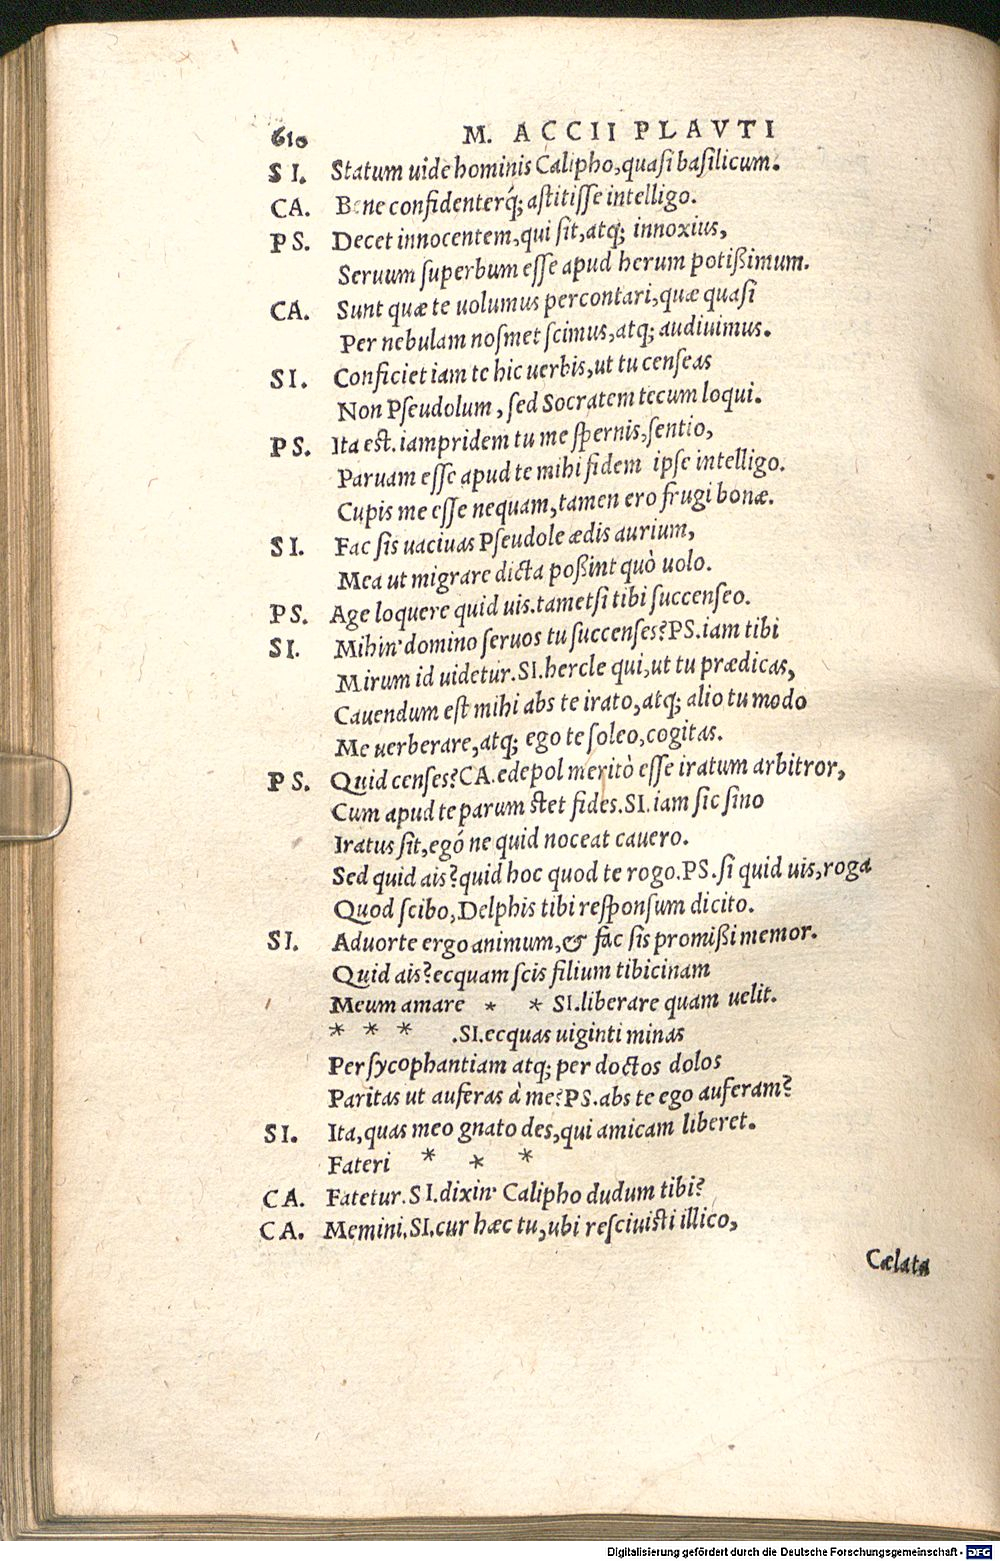 610 M. ACCII PLAVTI
SI. Statum uide hominis Calipho, quasi basilicum.
CA. Bene confidenterq́; astitisse intelligo.
PS. Decet innocentem, qui sit, atq; innoxius,
Seruum superbum esse apud herum potißimum.
CA. Sunt quæ te uolumus percontari, quæ quasi
Per nebulam nosmet scimus, atq; audiuimus.
SI. Conficiet iam te hic uerbis, ut tu censeas
Non Pseudolum, sed Socratem tecum loqui.
PS. Ita est. iampridem tu me spernis, sentio,
Paruam esse apud te mihi fidem ipse intelligo.
Cupis me esse nequam, tamen ero frugi bonæ.
SI. Fac sis uaciuas Pseudole ædis aurium,
Mea ut migrare dicta poßint quò uolo.
PS. Age loquere quid uis. tametsi tibi succenseo.
SI. Mihin' domino seruos tu succenses? PS. iam tibi
Mirum id uidetur. SI. hercle qui, ut tu prædicas,
Cauendum est mihi abs te irato, atq; alio tu modo
Me uerberare, atq; ego te soleo, cogitas.
PS. Quid censes? CA. edepol meritò esse iratum arbitror,
Cum apud te parum stet fides. SI. iam sic sino
Iratus sit, egó ne quid noceat cauero.
Sed quid ais? quid hoc quod te rogo. PS. si quid uis, roga
Quod scibo, Delphis tibi responsum dicito.
SI. Aduorte ergo animum, & fac sis promißi memor.
Quid ais? ecquam scis filium tibicinam
Meum amare * * SI. liberare quam uelit.
* * * .SI. ecquas uiginti minas
Per sycophantiam atq; per doctos dolos
Paritas ut auferas à me? PS. abs te ego auferam?
SI. Ita, quas meo gnato des, qui amicam liberet.
Fateri * * *
CA. Fatetur. SI. dixin' Calipho dudum tibi?
CA. Memini. SI. cur hæc tu, ubi resciuisti illico,
Cælata
Digitalisierung gefördert durch die Deutsche Forschungsgemeinschaft - DFG